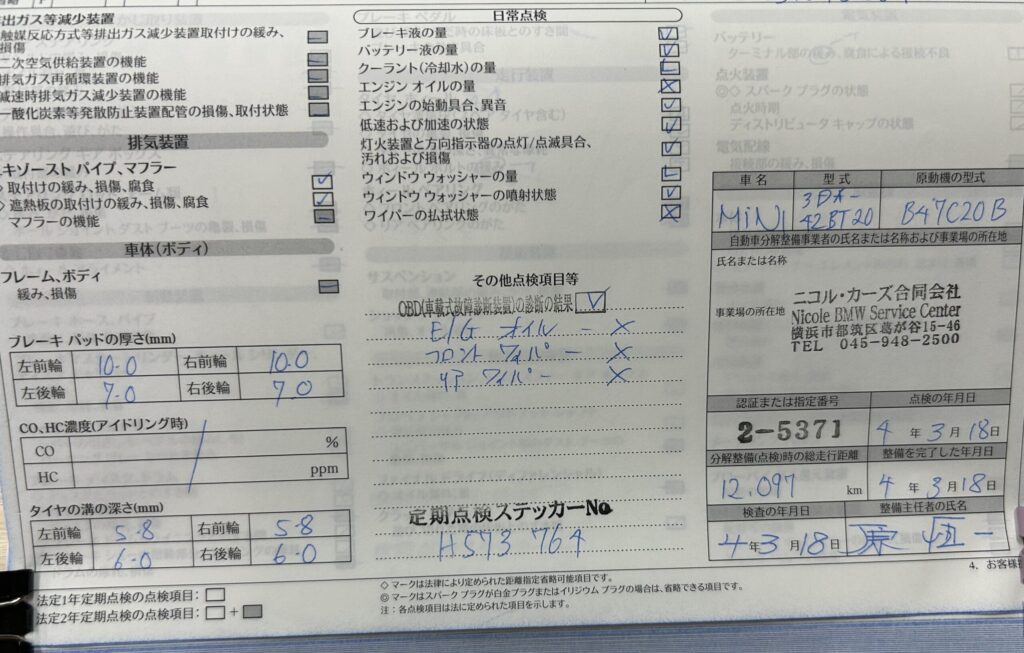 排出ガス等減少装置
触媒反応方式等排出ガス減少装置取付けの緩み、
損傷
二次空気供給装置の機能
排気ガス再循環装置の機能
減速時排気ガス減少装置の機能
一酸化炭素等発散防止装置配管の損傷、取付状態
排気装置
エキゾースト パイプ、マフラー
◇ 取付けの緩み、損傷、腐食
◇ 遮熱板の取付けの緩み、損傷、腐食
マフラーの機能
車体(ボディ)
フレーム、ボディ
緩み、損傷
ブレーキ パッドの厚さ(mm)
左前輪 10.0 右前輪 10.0
左後輪 7.0 右後輪 7.0
CO、HC濃度(アイドリング時)
CO %
HC ppm
タイヤの溝の深さ(mm)
左前輪 5.8 右前輪 5.8
左後輪 6.0 右後輪 6.0
法定1年定期点検の点検項目:
法定2年定期点検の点検項目: +
日常点検
ブレーキ液の量
バッテリー液の量
クーラント(冷却水)の量
エンジン オイルの量
エンジンの始動具合、異音
低速および加速の状態
灯火装置と方向指示器の点灯/点滅具合、
汚れおよび損傷
ウィンドウ ウォッシャーの量
ウィンドウ ウォッシャーの噴射状態
ワイパーの払拭状態
その他点検項目等
OBD(車載式故障診断装置)の診断の結果
E/G オイル － ×
フロント ワイパー － ×
リア ワイパー － ×
定期点検ステッカーNo
H573 764
◇ マークは法律により定められた距離指定省略可能項目です。
◎ マークはスパーク プラグが白金プラグまたはイリジウム プラグの場合は、省略できる項目です。
注：各点検項目は法に定められた項目を示します。
バッテリー
ターミナル部の緩み、腐食による接続不良
点火装置
◎◇ スパーク プラグの状態
点火時期
ディストリビュータ キャップの状態
電気配線
接続部の緩み、損傷
車名 型式 原動機の型式
MINI 3DA-42BT20 B47C20B
自動車分解整備事業者の氏名または名称および事業場の所在地
氏名または名称
事業場の所在地
ニコル・カーズ合同会社
Nicole BMW Service Center
横浜市都筑区葛が谷15-46
TEL 045-948-2500
認証または指定番号 点検の年月日
2-5371 4年3月18日
分解整備(点検)時の総走行距離 整備を完了した年月日
12,097 km 4年3月18日
検査の年月日 整備主任者の氏名
4年3月18日
4. お客様